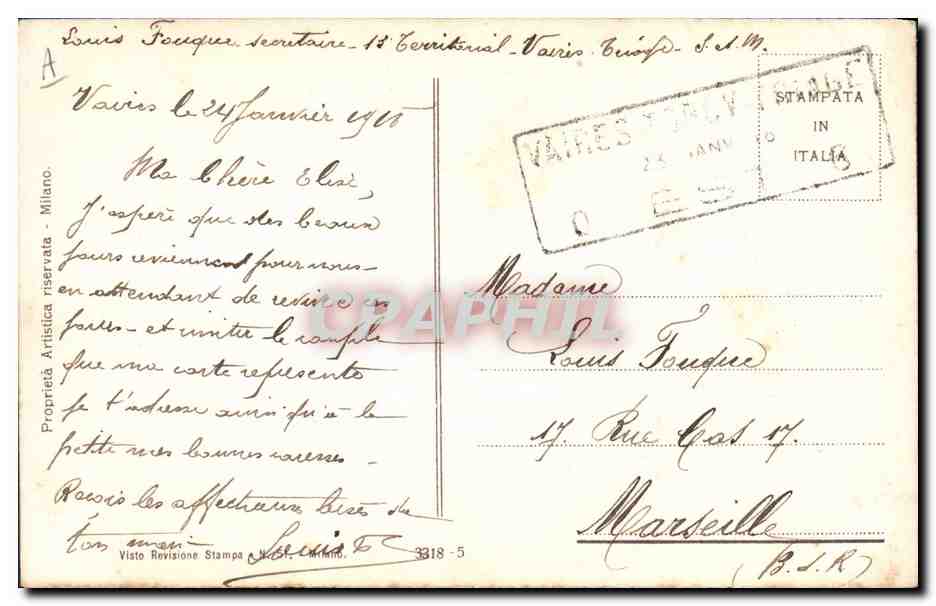 A
Louis Fouque secretaire - 1è Territorial - Vaires-Triage - S.A.M.
STAMPATA
IN
ITALIA
VAIRES-TORCY-TRIAGE
JANV
EST
Vaires le 24 Janvier 1916
Ma Chère Elise,
J'espère que des beaux
jours reviennent pour nous -
en attendant de revivre ces
jours - et imiter le couple
que ma carte représente
je t'adresse ainsi qu'à la
petite mes bonnes caresses -
Reçois les affectueux baisers de
ton mari
Louis F
Madame
Louis Fouque
17. Rue Cas 17.
Marseille
(B.d.R)
Proprietà Artistica riservata - Milano.
Visto Revisione Stampa - N. Milano.
3318 - 5
CPARHIL